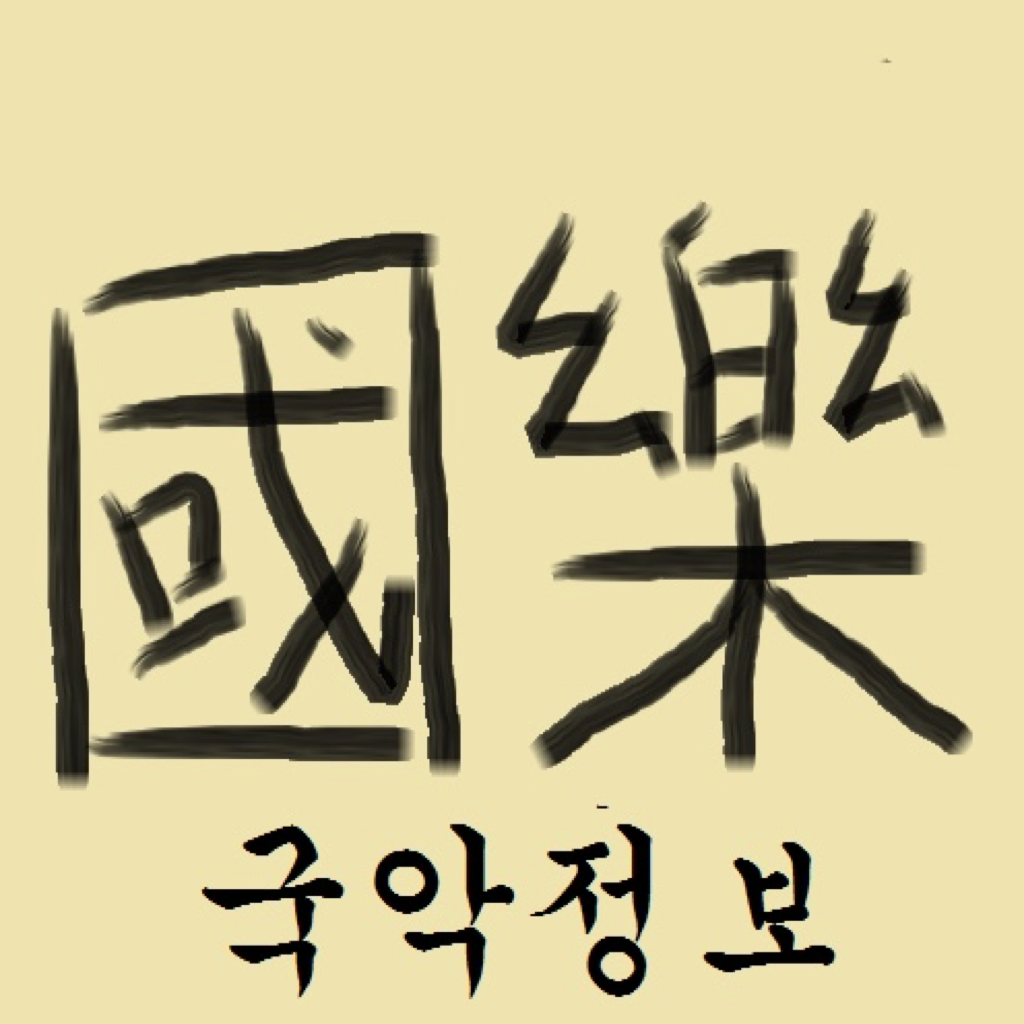 國樂
국악정보